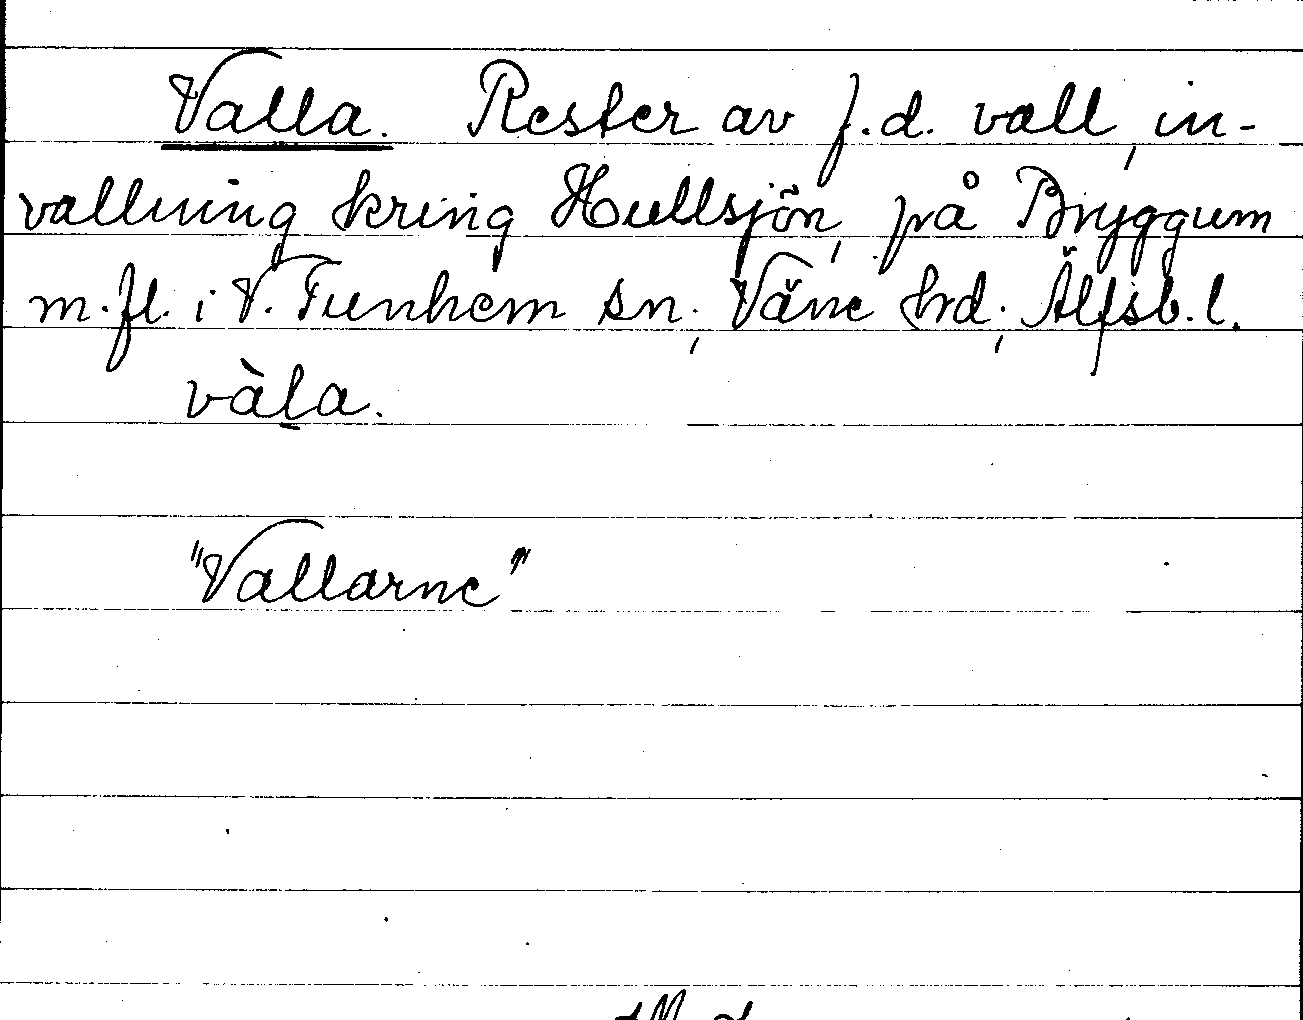 Valla. Rester av f.d. vall, in-
vallning kring Hullsjön, på Bryggum
m.fl. i V. Tunhem sn., Väne hd., Älfsb. l.
vàḷa.
"Vallarne"